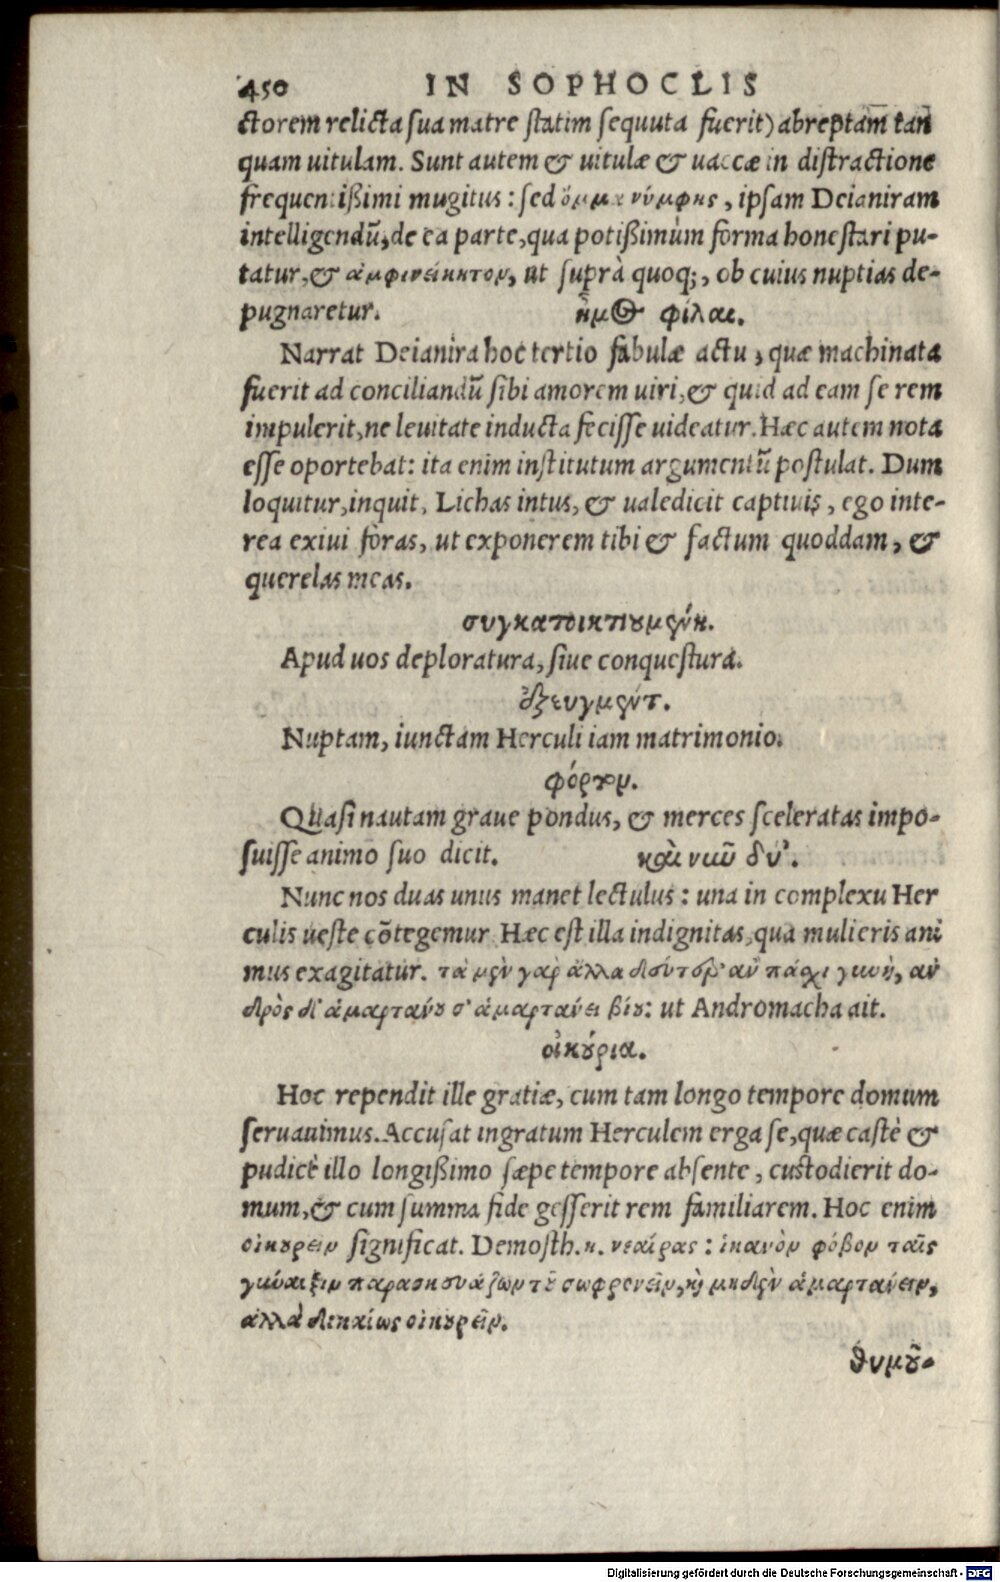 450 IN SOPHOCLIS
ctorem relicta sua matre statim sequuta fuerit) abreptam̄ tan
quam uitulam. Sunt autem & uitulæ & uaccæ in distractione
frequentißimi mugitus: sed ὄμμα νύμφης, ipsam Deianiram
intelligendū, de ea parte, qua potißimùm forma honestari pu-
tatur, & ἀμφινείκητον, ut suprà quoq;, ob cuius nuptias de-
pugnaretur. ἦμος φίλαι.
Narrat Deianira hoc tertio fabulæ actu, quæ machinata
fuerit ad conciliandū sibi amorem uiri, & quid ad eam se rem
impulerit, ne leuitate inducta fecisse uideatur. Hæc autem nota
esse oportebat: ita enim institutum argumentū postulat. Dum
loquitur, inquit, Lichas intus, & ualedicit captiuis, ego inte-
rea exiui foras, ut exponerem tibi & factum quoddam, &
querelas meas.
συγκατοικτιουμένη.
Apud uos deploratura, siue conquestura.
ἐζευγμένην.
Nuptam, iunctam Herculi iam matrimonio.
φόρτον.
Quasi nautam graue pondus, & merces sceleratas impo-
suisse animo suo dicit. καὶ νῦν δύ'.
Nunc nos duas unus manet lectulus: una in complexu Her
culis ueste cōtegemur. Hæc est illa indignitas, qua mulieris ani
mus exagitatur. τὰ μὲν γὰρ ἄλλα δεύτερ' ἂν πάσχοι γυνή, ἀν
δρὸς δ' ἁμαρτάνουσ' ἁμαρτάνει βίου: ut Andromacha ait.
οἰκούρια.
Hoc rependit ille gratiæ, cum tam longo tempore domum
seruauimus. Accusat ingratum Herculem erga se, quæ castè &
pudicè illo longißimo sæpe tempore absente, custodierit do-
mum, & cum summa fide gesserit rem familiarem. Hoc enim
οἰκουρεῖν significat. Demosth. κ. νεαίρας: ἱκανὸν φόβον ταῖς
γυναιξὶν παρασκευάζων τοῦ σωφρονεῖν, καὶ μηδὲν ἁμαρτάνειν,
ἀλλὰ δικαίως οἰκουρεῖν.
θυμοῦ-
Digitalisierung gefördert durch die Deutsche Forschungsgemeinschaft - DFG